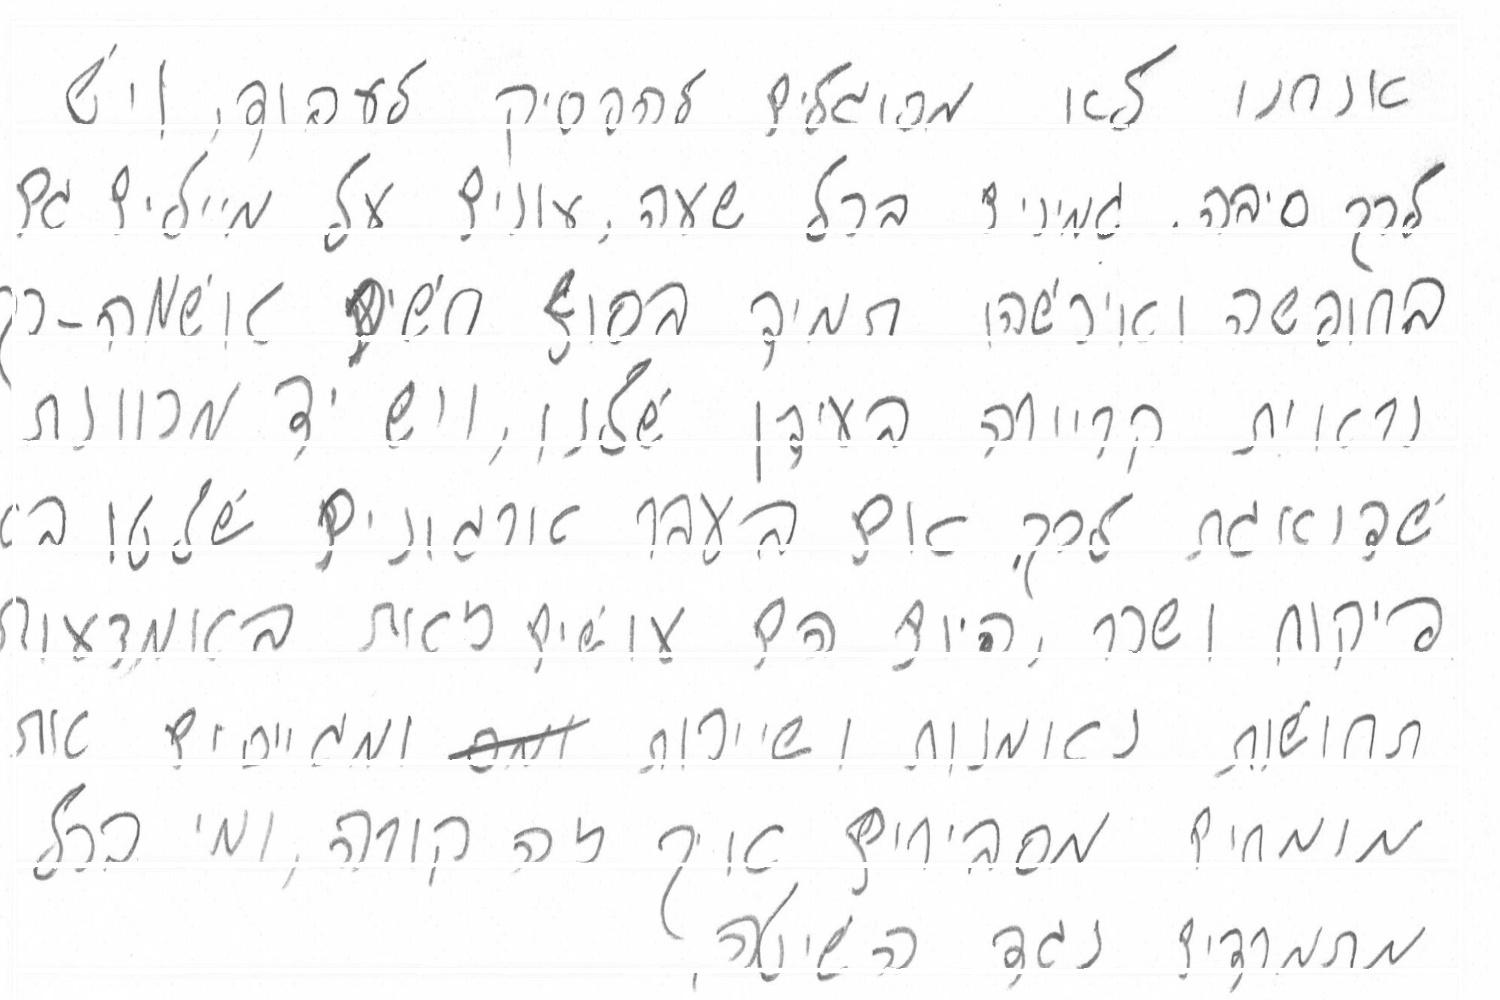 אנחנו לא מסוגלים להפסיק לעבוד, ויש
לכך סיבה. זמינים בכל שעה, עונים על מיילים גם
בחופשה ואיכשהו תמיד בסוף חשים אשמה - כך
נראית קריירה בעידן שלנו, ויש יד מכוונת
שדואגת לכך. אם בעבר ארגונים שלטו בא
פיקוח ושכר, היום הם עושים זאת באמצעות
תחושות נאמנות ושייכות ומגייסים את
מומחים מסבירים איך זה קורה, ומי בכל
מתמרדים נגד השיטה